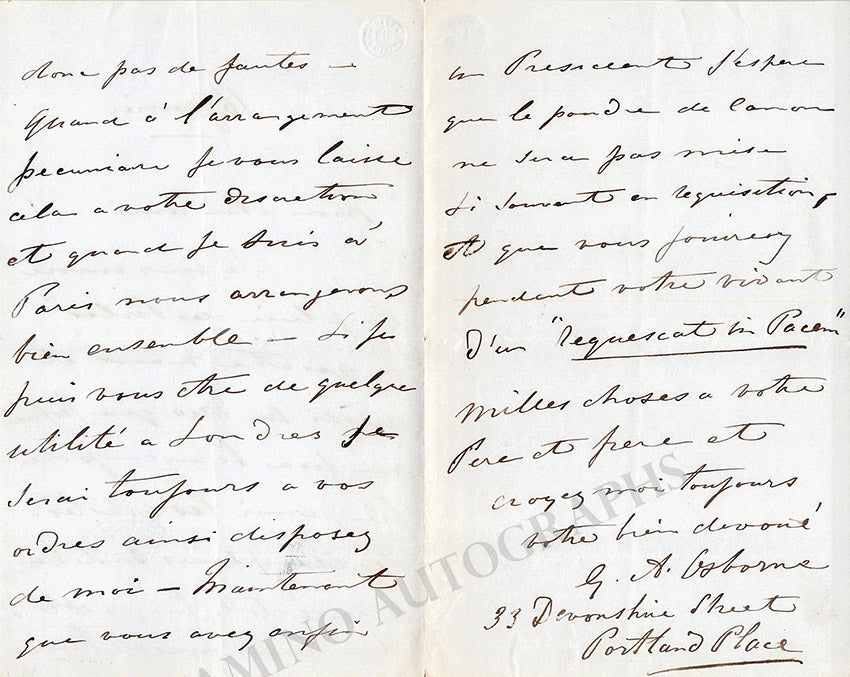 donc pas de fautes —
Quand á l'arrangement
pecuniare je vous laisse
cela a votre discretion
et quand je suis á
Paris nous arrangerons
bien ensemble — Si je
puis vous être de quelque
utilité a Londres je
serai toujours a vos
ordres ainsi disposez
de moi — Maintenant
que vous avez enfin
un President j'espere
que le poudre de canon
ne sera pas mise
si souvent en requisition,
et que vous jouirez
pendant votre vivant
d'un "requescat in Pacem"
Milles choses a votre
Pere et frere et
croyez moi toujours
votre bien devoué
G. A. Osborne
33 Devonshire Street
Portland Place
TAMINO AUTOGRAPHS